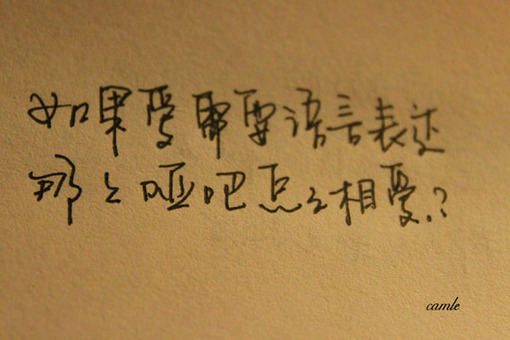 如果爱需要语言表达
那么哑吧怎么相爱.?
camle